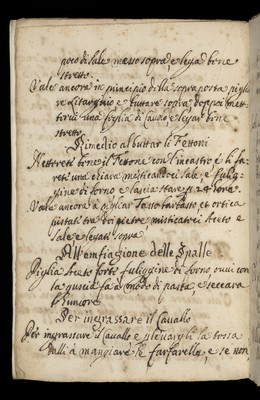 poco di sale messo sopra, e legar bene
stretto.
Vale ancora in principio della sopraposta piglia
re Litargirio e buttare sopra doppoi mett
tervi una foglia di Cavolo, e legar bene
stretto.
Rimedio al buttar li Fettoni
Nettrete bene il Fettone con l'incastro e li fa
rete una chiara misticandoci sale, e fulig
gine di forno e lascia stare p 24 hora.
Vale ancora a pigliar Tasso barbasso et ortica
pistati tra doi pietre misticatevi Aceto e
sale e legati sopra
All' emfiagione delle Spalle
Piglia Aceto forte fuliggine di forno, ova con
la guscia fa a modo di pasta, e seccara
l'humore
Per ingrassare il Cavallo
Per ingrassare il Cavallo e levargli la tossa
dalli a mangiare le farfarelle, e se non